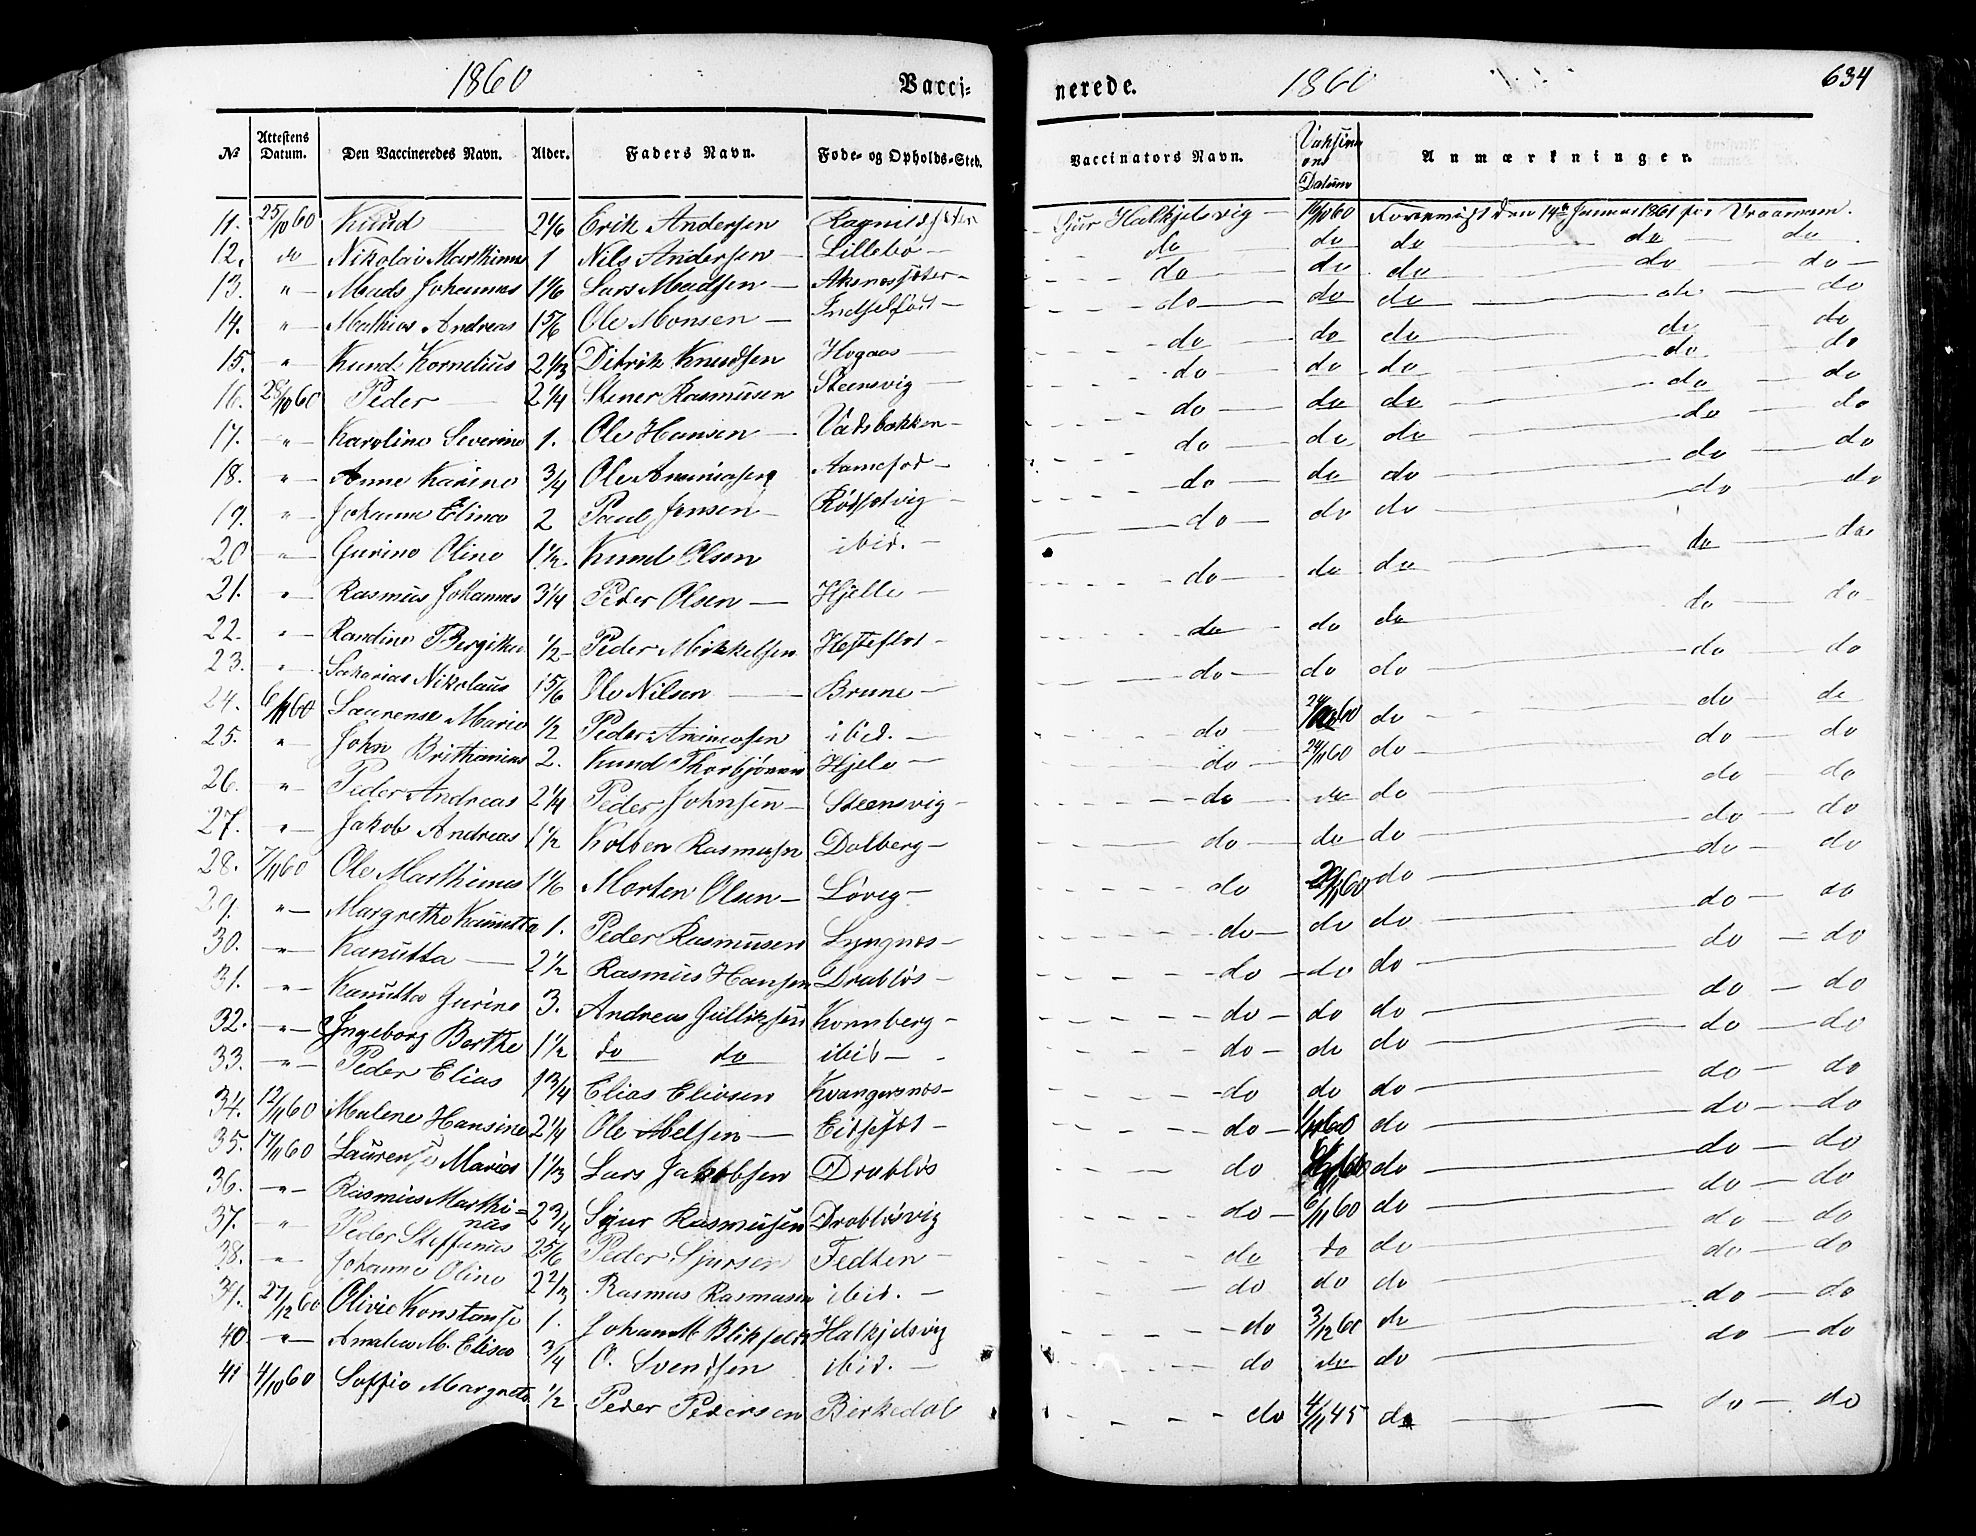 1860 Vacci- nerede. 1860 634
No Attestens Datum. Den Vaccineredes Navn. Alder. Faders Navn. Føde- og Opholds-Sted. Vaccinators Navn. Datum Anmærkninger.
11. 25/10 60 Knud 2 1/6 Erik Andersen Sjur Halkjelsvig 16/10 60 den 14de Januar 1861
12. do Nikolai Marthinus 1 Nils Andersen Lillebø do do do do do
13. " Mads Johannes 1 1/6 Lars Madsen Aksnessæter do do do do do
14. " Mathias Andreas 1 5/6 Ole Monsen Indselset do do do do do
15. " Knud Kornelius 2 1/3 Didrik Knudsen Hogaas do do do do do
16. 28/10 60 Peder 2 1/4 Stener Rasmusen Steensvig do do do do do
17. " Karoline Severine 1. Ole Hansen Vadsbakken do do do do do
18. " Anne Karine 3/4 Ole Ananiasen Aamefod do do do do do
19. " Johanne Elinea 2 Paul Jensen Rødsetvig do do do do do
20 " Gurine Oline 1 1/2. Knud Olsen ibid. do do do do do
21. " Rasmus Johannes 3 1/4 Peder Olsen Hjelle do do do do do
22. " Randine Bergithe 1/2 Peder Mikkelsen Hesteflot do do do do do
23. " Sakarias Nikolaus 1 5/6 Ole Nilsen Brune do do do do do
24. 6/11 60 Laurense Marie 1/2 Peder Ananiasen ibid. do do do do
25. " John Brithanius 2. Knud Thorbjørnsen Hjele do 24/11 60 do do do
26. " Peder Andreas 2 1/4 Peder Johnsen Steensvig do do do do do
27. " Jakob Andreas 1 1/2 Kolben Rasmusen Dalberg do do do do do
28. 7/11 60 Ole Marthinus 1 1/6 Morten Olsen Løvig do do do do
29. " Margrethe Kanutta 1. Peder Rasmusen Lyngnes do do do do do
30. " Kanutta 2 1/2 Rasmus Hansen Drabløs do do do do do
31. " Kanutta Gurine 3. Andreas Gulliksen Kornberg do do do do do
32. " Ingeborg Berthe 1 1/2 do do ibid do do do do do
33. " Peder Elias 1 3/4 Elias Eliasen Kvangersnes do do do do do
34. 12/11 60 Malene Hansine 2 1/4 Ole Abelsen Eidsflot do do do do
35. 17/11 60 Laurense Marie 1 1/3 Lars Jakobsen Drabløs do do do do
36. " Rasmus Marthi-
nus 2 3/4 Sjur Rasmusen Drabløsvig do 6/11 60 do do do
37. " Peder Steffanus 2 5/6 Peder Sjursen Fedten do do do do do
38. " Johanne Oline 2 2/3 Rasmus Rasmusen ibid. do do do do do
39. 27/12 60 Olivie Konstanse 1. Johan M. Blikfeldt Halkjelsvig do 3/12 60 do do do
40 " Amalie M. Elisea 3/4 O. Svendsen ibid. do do do do do
41 4/10 60 Soffie Margrete 1/2 Peder Pedersen Birkedal do 4/11 45 do do do